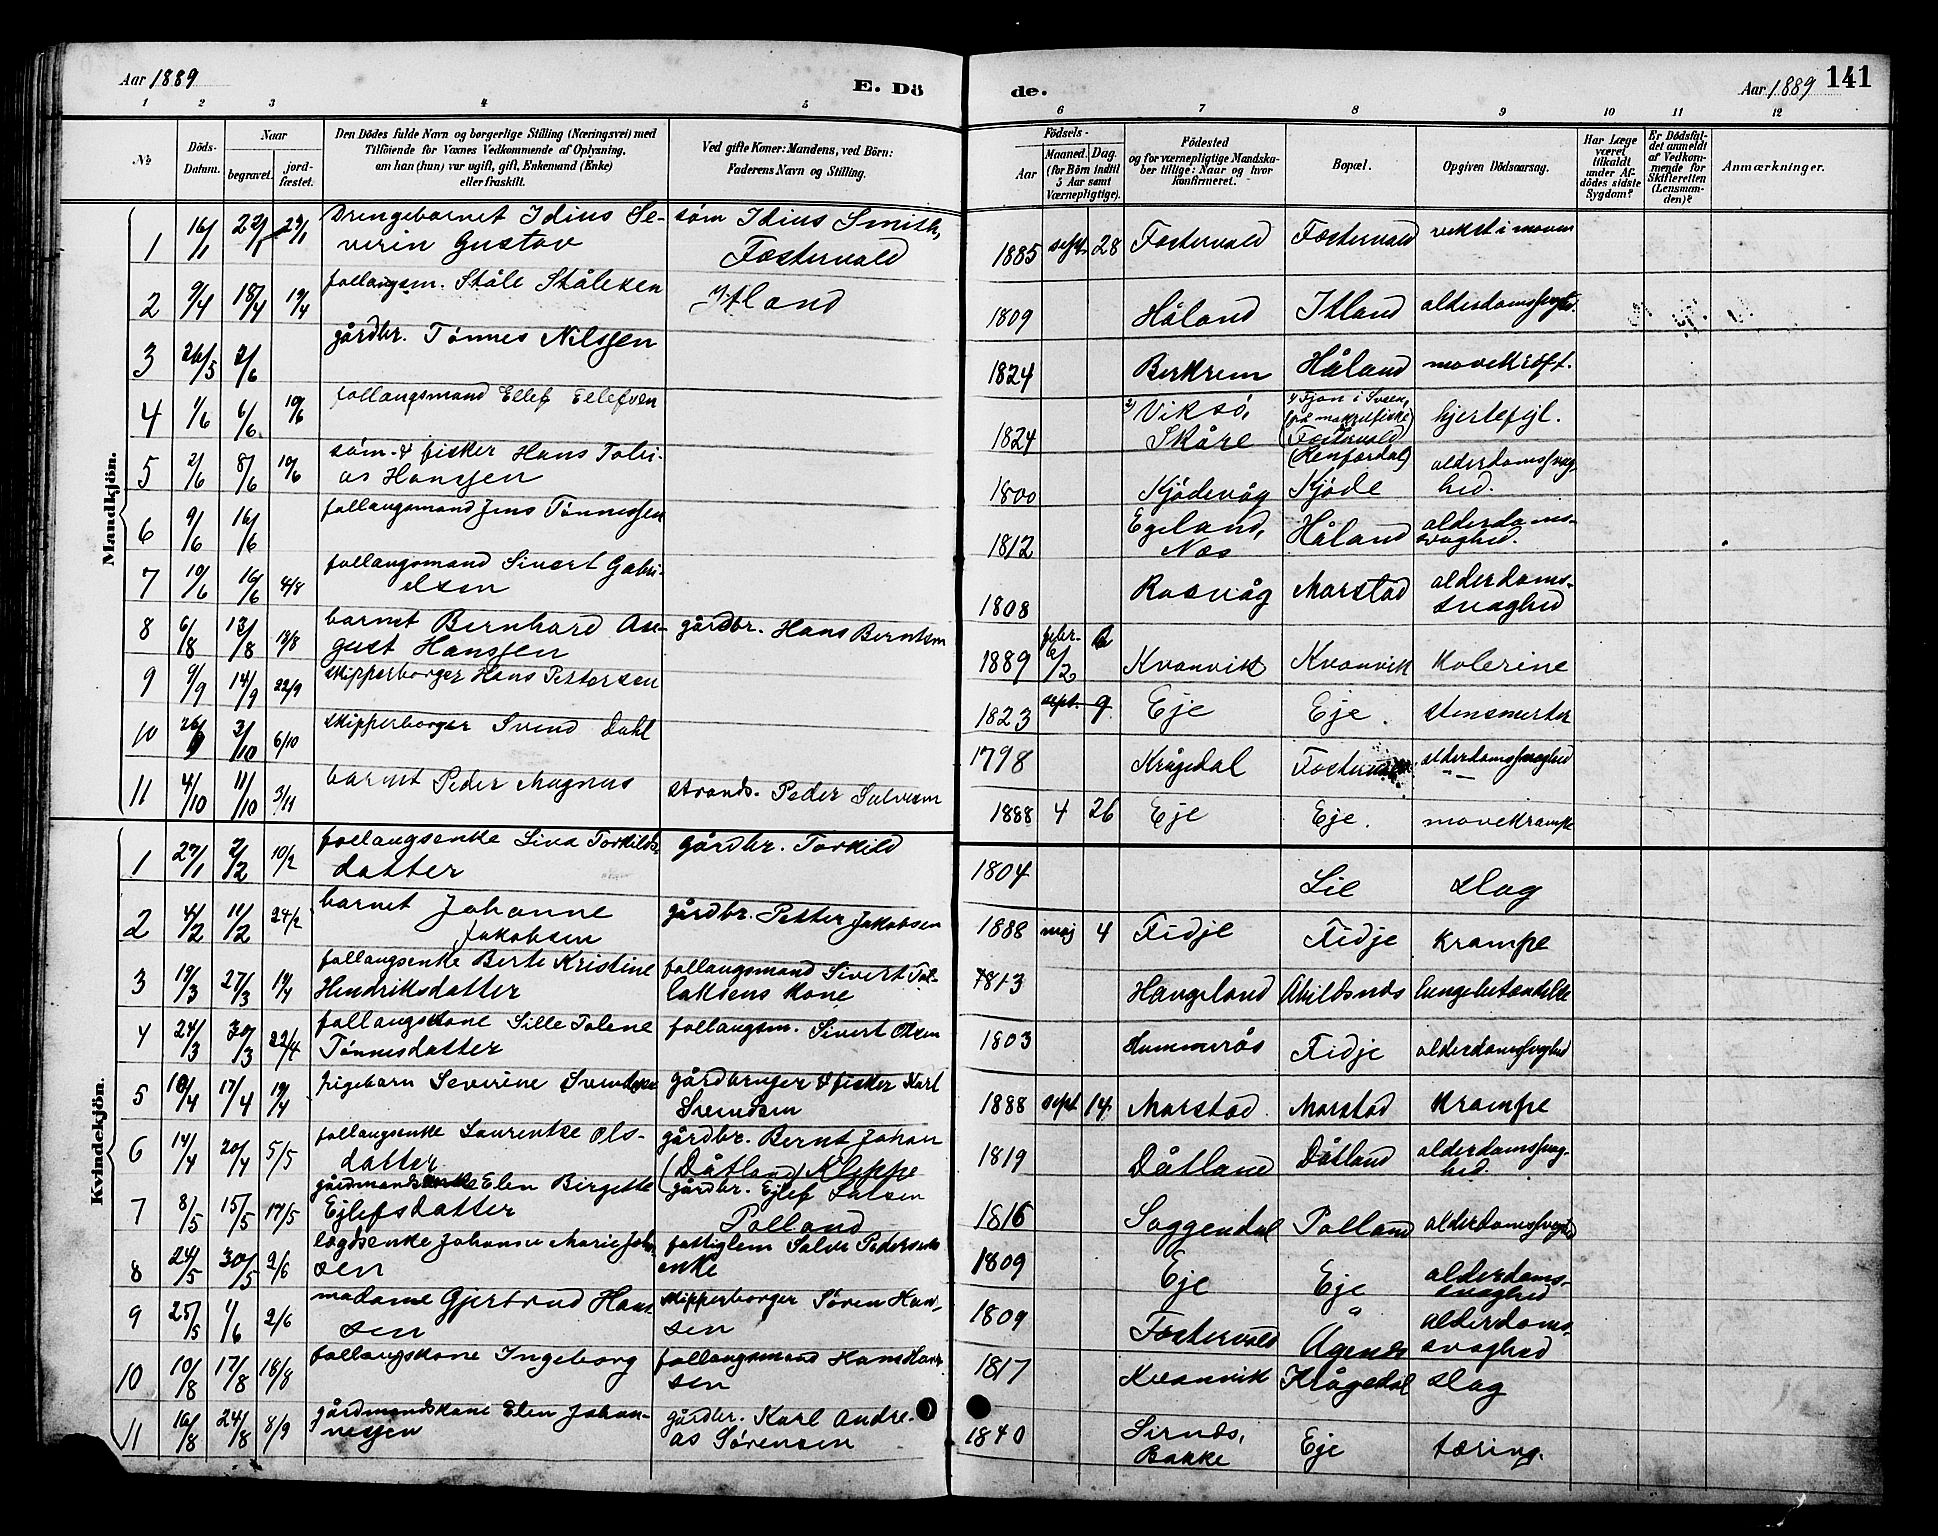 Aar 1889
E. Dö
de.
Aar 1889
141
1 2 3 4 5
6 7 8 9 10 11 12
No
Döds-Datum.
Naar
begravet.
jord-fæstet.
Den Dödes fulde Navn og borgerlige Stilling (Næringsvei) med
Tilföiende for Voxnes Vedkommende af Oplysning,
om han (hun) var ugift, gift, Enkemand (Enke)
eller fraskilt.
Ved gifte Koner: Mandens, ved Börn:
Faderens Navn og Stilling.
Födsels-
Aar
Maaned. Dag.
(for Börn indtil
5 Aar samt
Værnepligtige).
Födested
og for værnepligtige Mandska-
ber tillige: Naar og hvor
konfirmeret.
Bopæl.
Opgiven Dödsaarsag.
Har Læge
været
tilkaldt
under Af-
dödes sidste
Sygdom?
Er Dödsfal-
det anmeldt
af Vedkom-
mende for
Skifteretten
(Lensman-
den)?
Anmærkninger.
Mandkjön.
1 16/1 29/1 Drengebarnet Idius Se-
verin Gustav
søm Idius Smith,
Fostervold
1885 sept. 28 Fostervold Fostervold vekst i maven
2 9/4 18/4 19/4 follaugsm. Ståle Ståleson
Itland
1809 Håland Itland
3 26/5 2/6 gårdbr. Tønnes Nilssen
1824 Berkrem Håland mavekræft.
4 1/6 6/6 10/6 follaugsmand Ellef Ellefsen
1824 Viksø,
Skåre
hjertefejl.
5 2/6 8/6 10/6 søm. & fisker Hans Tobi-
as Hanssen
1800 Kjødevåg Kjøde alderdomssvag-
hed.
6 9/6 16/6 follaugsmand Jens Tønnessen
1812 Egeland,
Næs
Håland alderdoms-
svaghed.
7 10/6 16/6 4/8 follaugsmand Sivert Gabri-
elsen
1808 Rasvåg Marstad alderdoms-
svaghed
8 6/8 13/8 13/8 barnet Bernhard Au-
gust Hanssen
gårdbr. Hans Berntsen
1889 febr. 6/2 6 Kvanvik Kvanvik Kolerine
9 9/9 14/9 22/9 skipperborger Hans Pettersen
1823 sept. 9 Eje Eje. stensmerter
10 26/9 3/10 6/10 skipperborger Svend Dahl
1798 Krågedal Fostervold alderdomssvaghed
11 4/10 11/10 3/11 barnet Peder Magnus
strands. Peder Salvesen
1888 4 26 Eje Eje. mavekrampe
Kvindekjön.
1 27/1 2/2 10/2 follaugsenke Siva Torkilds-
datter
gårdbr. Torkild
1804 Lie slag
2 4/2 11/2 24/2 barnet Johanne
Jakobsen
gårdbr. Petter Jakobsen
1888 maj 4 Fidje Fidje krampe
3 19/3 27/3 19/4 follaugsenke Berte Kristine
Hendriksdatter
follaugsmand Sivert Tol-
laksens kone
1813 Haugeland Abildsnæs lungebetændelse
4 24/3 30/3 22/4 follaugskone Sille Tolene
Tønnesdatter
follaugsm. Sivert Olsen
1803 Hummerås Fidje alderdomssvaghed
5 10/4 17/4 19/4 pigebarn Severine Svendsen
gårdbruger & fisker Karl
Svendsen
1888 sept 14. Marstad. Marstad krampe
6 14/4 20/4 5/5 follaugsenke Laurentse Ols-
datter
gårdbr. Bernt Johan
(Dåtland) Kleppe
1819 Dåtland Dåtland alderdomssvag-
hed.
7 8/5 15/5 17/5 gårdmandsenke Elen Birgitte
Ejlefsdatter
gårdbr. Ejlef Larsen
Polland
1816 Soggendal Polland alderdomssvaghed
8 24/5 30/5 2/6 lægdsenke Johanne Marie Johan
sen
fattiglem Salve Pedersens
enke
1809 Eje Eje alderdoms-
svaghed
9 25/5 1/6 2/6 madame Gjertrud Han
sen
skipperborger Søren Han-
sen
1809 Fostervold Ågenes alderdoms-
svaghed
10 10/8 17/8 18/8 follaugskone Ingeborg
follaugsmand Hans Han
sen
1817 Kvanvik Krågedal slag
11 16/8 24/8 8/9 gårdmandskone Elen Johan-
nessen
gårdbr. Karl Andre-
as Sørensen
1840 Sirnæs,
Bakke
Eje tæring.